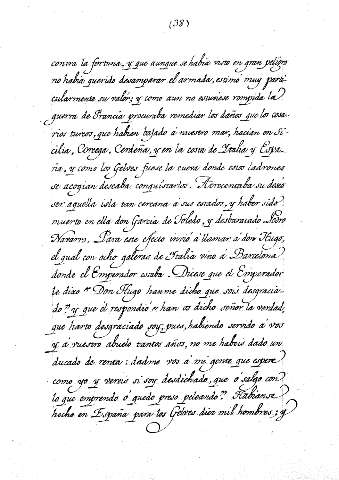 (38)
contra la fortuna, y que aunque se habia visto en gran peligro
no habia querido desamparar el armada, estimo muy parti
cularmente su valor; y como aun no estuviese rompida la
guerra de Francia procuraba remediar los daños que los cosa-
rios turcos, que habian bajado á nuestro mar, hacian en Si-
cilia, Corcega, Cerdeña, y en la costa de Italia y Espa-
ña, y como los Gelves fuese la cueva donde estos ladrones
se acogian deseaba conquistarlos. Acrecentaba su deseo
ser aquella isla tan cercana á sus estados, y haber sido
muerto en ella don Garcia de Toledo, y desbaratado Pedro
Navarro. Para este efecto envió á llamar á don Hugo,
el qual con ocho galeras de Italia vino á Barcelona
donde el Emperador estaba. Dicese que el Emperador
le dixo "Don Hugo hanme dicho que sois desgracia-
do" y que él respondió "han os dicho señor la verdad,
que harto desgraciado soy, pues, habiendo servido á vos
y á vuestro abuelo tantos años, no me habeis dado un
ducado de renta: dadme vos á mi gente que espere
como yo y vereis si soy desdichado, que ó salgo con
lo que emprendo ó quedo preso peleando". Habianse
hecho en España para los Gelves diez mil hombres; y